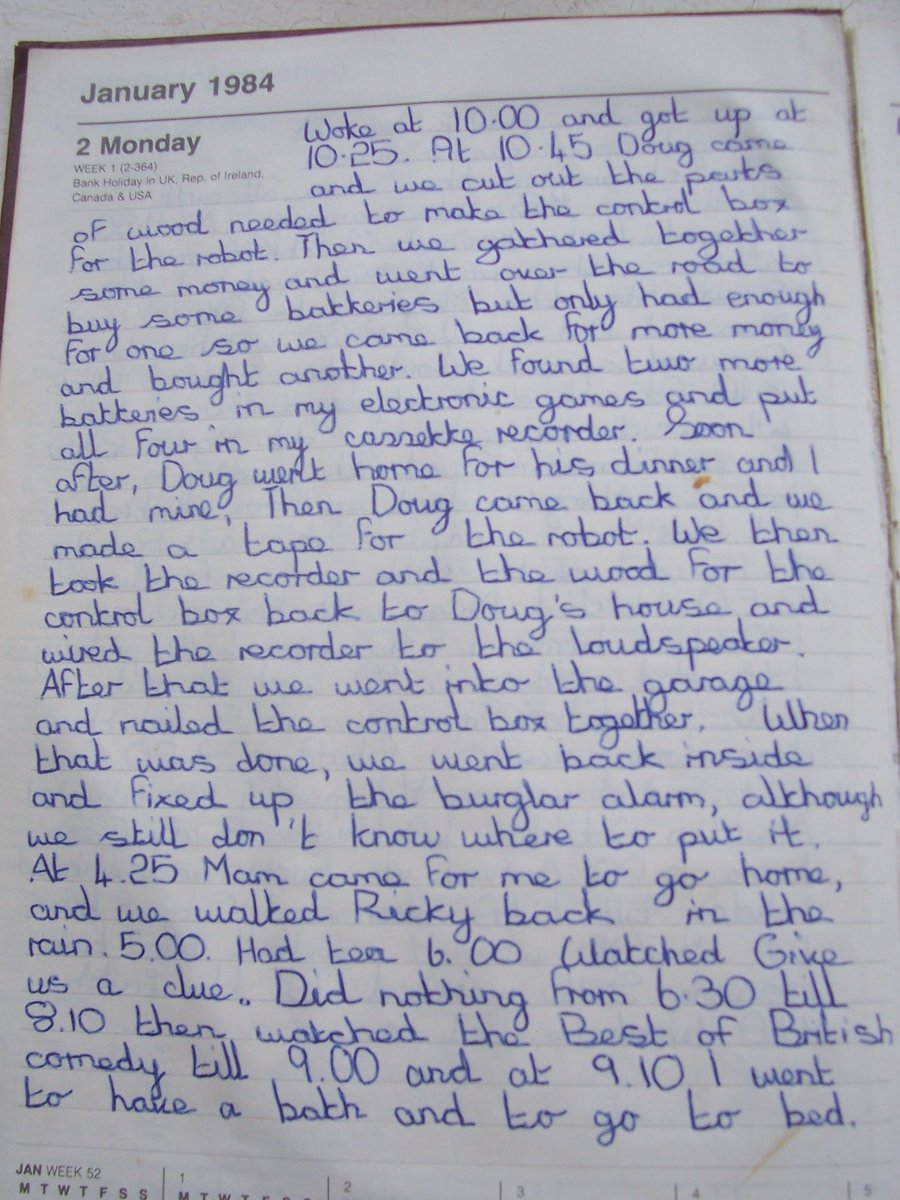 January 1984
2 Monday
WEEK 1 (2-364)
Bank Holiday in UK, Rep. of Ireland,
Canada & USA
Woke at 10.00 and got up at
10.25. At 10.45 Doug came
and we cut out the parts
of wood needed to make the control box
for the robot. Then we gathered together
some money and went over the road to
buy some batteries but only had enough
for one so we came back for more money
and bought another. We found two more
batteries in my electronic games and put
all four in my cassette recorder. Soon
after, Doug went home for his dinner and I
had mine, Then Doug came back and we
made a tape for the robot. We then
took the recorder and the wood for the
control box back to Doug's house and
wired the recorder to the loudspeaker.
After that we went into the garage
and nailed the control box together. When
that was done, we went back inside
and fixed up the burglar alarm, although
we still don't know where to put it.
At 4.25 Mam came for me to go home,
and we walked Ricky back in the
rain. 5.00. Had tea 6.00 Watched Give
us a clue. Did nothing from 6.30 till
8.10 then watched the Best of British
comedy till 9.00 and at 9.10 I went
to have a bath and to go to bed.
JAN WEEK 52 1 2 3 4 5
M T W T F S S M T W T F S S